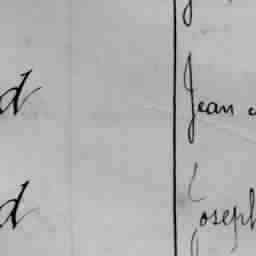 d Jean
d Joseph